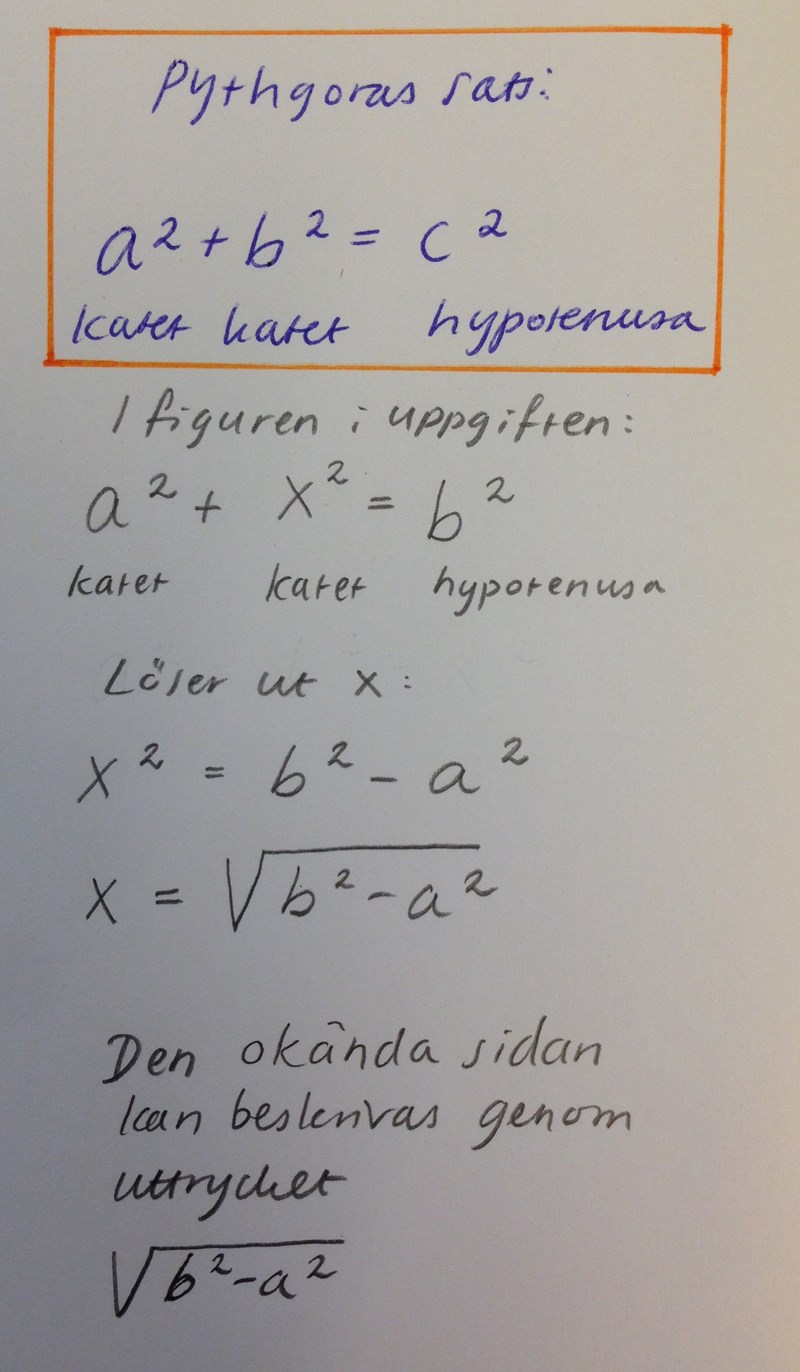 Pythgoras sats:
a² + b² = c²
katet katet hypotenusa
I figuren i uppgiften:
a² + x² = b²
katet katet hypotenusa
Löser ut x:
x² = b² - a²
x = √(b² - a²)
Den okända sidan
kan beskrivas genom
uttrycket
√(b² - a²)